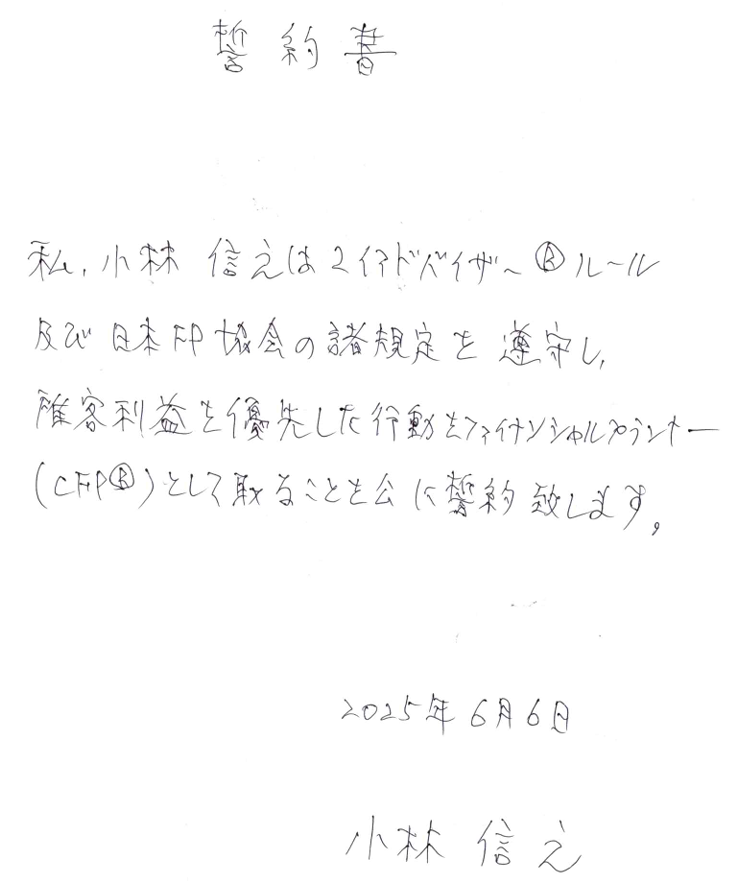 誓約書
私、小林 信之はマイアドバイザー®ルール
及び日本FP協会の諸規定を遵守し、
顧客利益を優先した行動をファイナンシャルプランナー
(CFP®)として取ることを公に誓約致します。
2025年6月6日
小林 信之